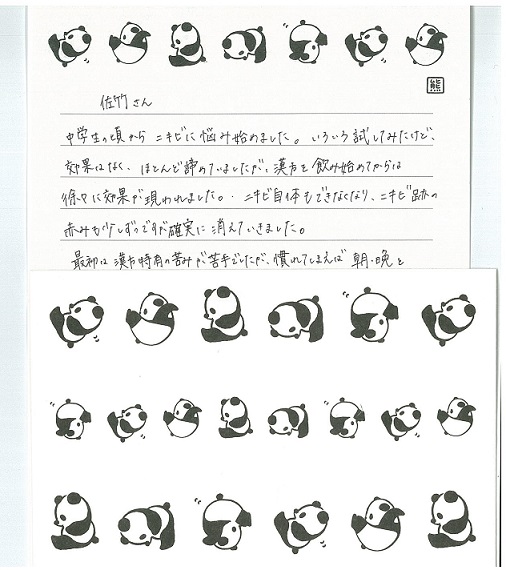 熊
佐竹さん
中学生の頃から ニキビに悩み始めました。いろいろ試してみたけど、
効果はなく、ほとんど諦めていましたが、漢方を飲み始めてからは
徐々に効果が現われました。ニキビ自体もできなくなり、ニキビ跡の
赤みも少しずつですが確実に消えていきました。
最初は漢方特有の苦みが苦手でしたが、慣れてしまえば朝・晩と